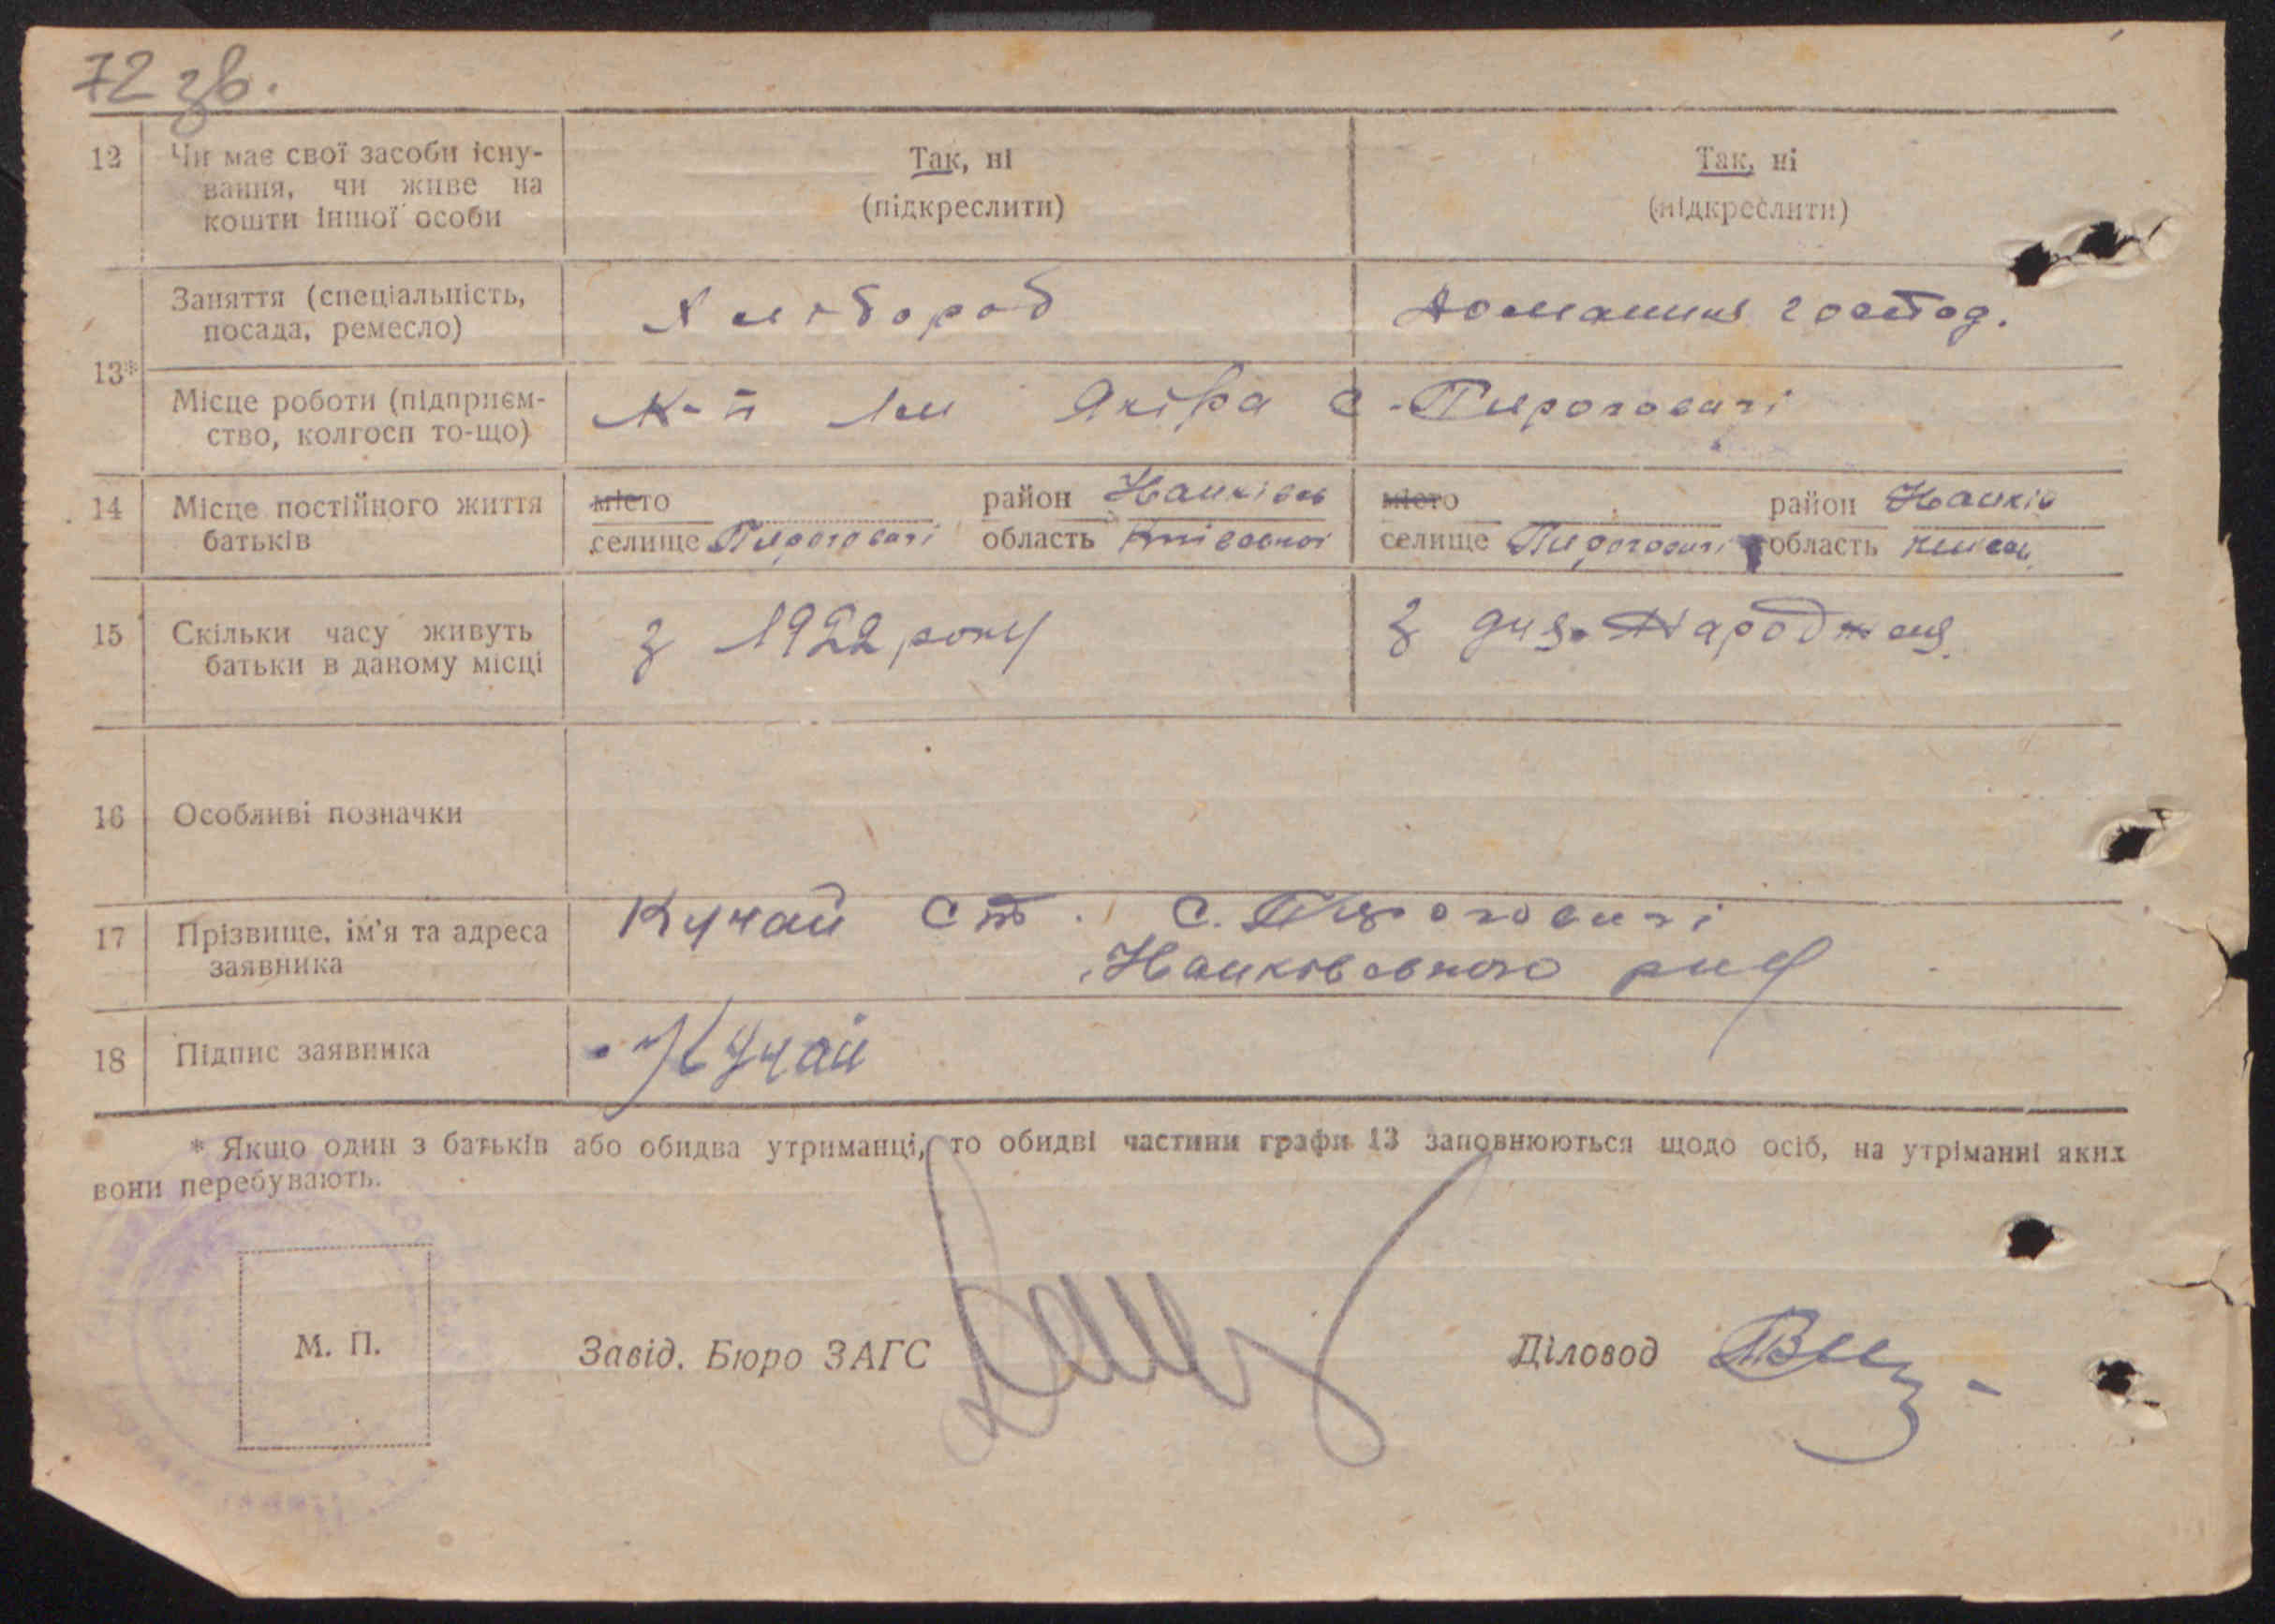 72 зв.
12 Чи має свої засоби існу- Так, ні Так, ні
вання, чи живе на
кошти іншої особи (підкреслити) (підкреслити)
Заняття (спеціальність, Хлібороб Домашня господ.
посада, ремесло)
13*
Місце роботи (підприєм- К-п Ім Якіра с. Пироговичі
ство, колгосп то-що)
14 Місце постійного життя місто район Іванківськ місто район Іванків
батьків селище Пироговичі область Київської селище Пироговичі область Київськ
15 Скільки часу живуть з 1922 року з дня Народження
батьки в даному місці
16 Особливі позначки
17 Прізвище, ім'я та адреса Кучай Ст. с. Пироговичі
заявника Іванківського р-ну
18 Підпис заявника Кучай
* Якщо один з батьків або обидва утриманці, то обидві частини графи 13 заповнюються щодо осіб, на утріманні яких
вони перебувають.
М. П. Завід. Бюро ЗАГС Діловод